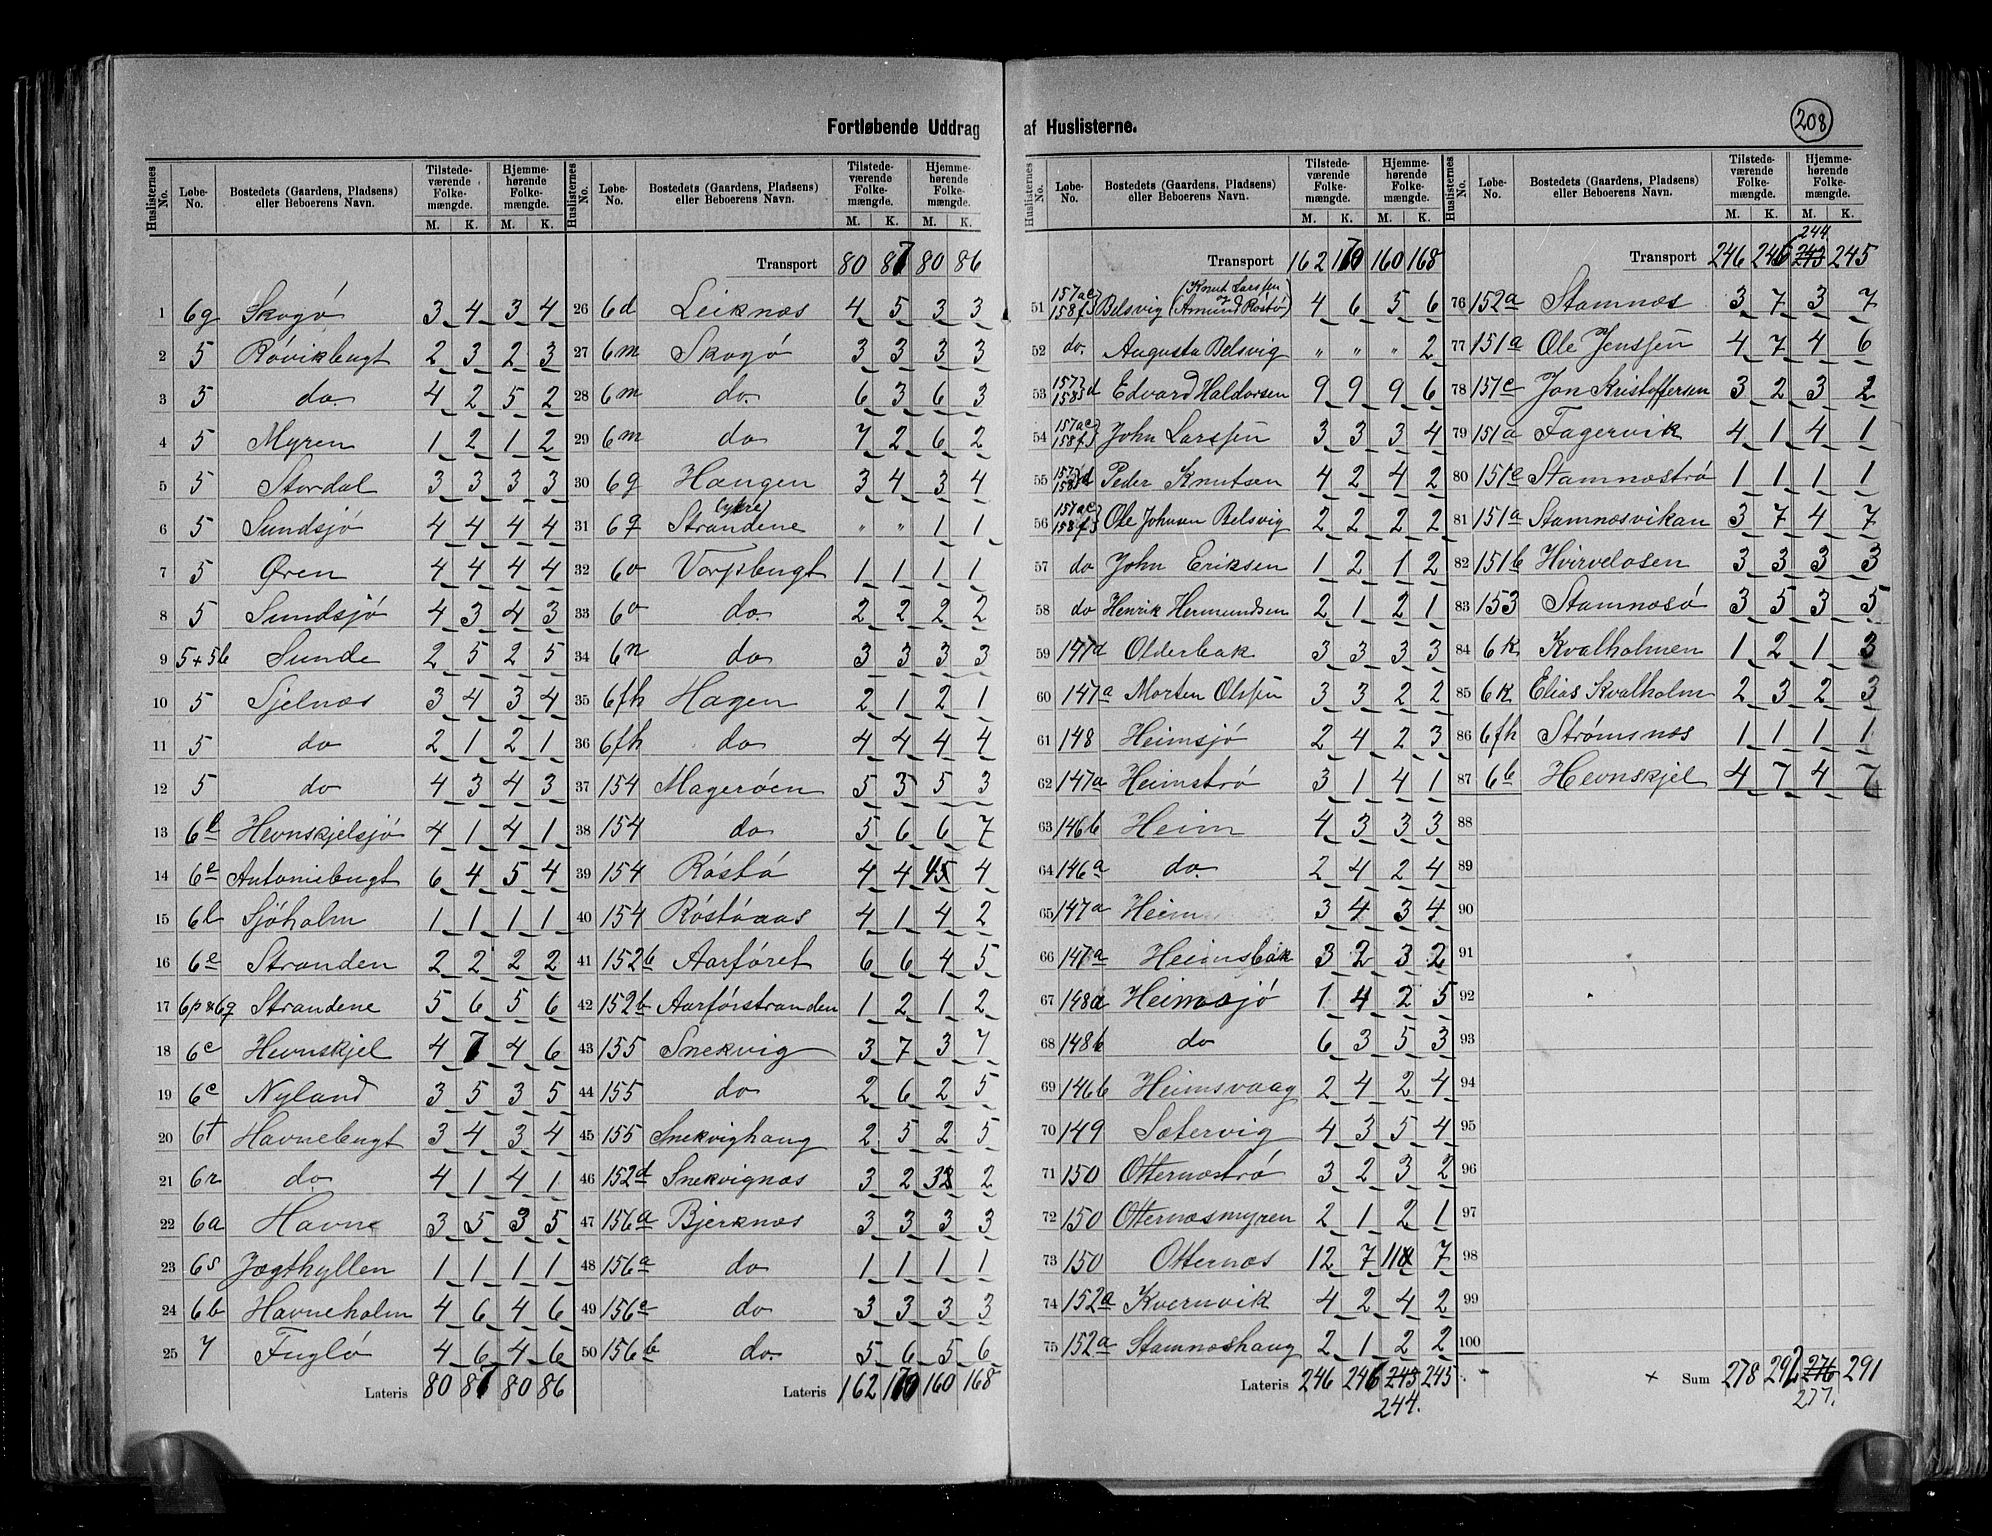 208
Fortløbende Uddrag af Huslisterne.
Huslisternes No. | Løbe-No. | Bostedets (Gaardens, Pladsens) eller Beboerens Navn. | Tilstedeværende Folkemængde. M. K. | Hjemmehørende Folkemængde. M. K.
1 6g Skogø 3 4 3 4
2 5 Røvikbugt 2 3 2 3
3 5 do. 4 2 5 2
4 5 Myren 1 2 1 2
5 5 Stordal 3 3 3 3
6 5 Sundsjø 4 4 4 4
7 5 Øren 4 4 4 4
8 5 Sundsjø 4 3 4 3
9 5+5b Sunde 2 5 2 5
10 5 Sjelnæs 3 4 3 4
11 5 do 2 1 2 1
12 5 do 4 3 4 3
13 6l Hevnskjelsjø 4 1 4 1
14 6e Antoniebugt 6 4 5 4
15 6l Sjøholm 1 1 1 1
16 6e Stranden 2 2 2 2
17 6p&6q Strandene 5 6 5 6
18 6c Hevnskjel 4 7 4 6
19 6c Nyland 3 5 3 5
20 6t Havnebugt 3 4 3 4
21 6r do. 4 1 4 1
22 6a Havne 3 5 3 5
23 6s Jægthyllen 1 1 1 1
24 6b Havneholm 4 6 4 6
25 7 Fuglø 4 6 4 6
Lateris 80 87 80 86
Transport 80 87 80 86
26 6d Leiknæs 4 5 3 3
27 6m Skogø 3 3 3 3
28 6m do. 6 3 6 3
29 6m do 7 2 6 2
30 6g Haugen 3 4 3 4
31 6q Strandene Lykre " " 1 1
32 6o Vorpbugt 1 1 1 1
33 6o do. 2 2 2 2
34 6n do 3 3 3 3
35 6fh Hagen 2 1 2 1
36 6fh do 4 4 4 4
37 154 Magerøen 5 3 5 3
38 154 do 5 6 6 7
39 154 Røstø 4 4 45 4
40 154 Røstøaas 4 1 4 2
41 152b Aarføret 6 6 4 5
42 152b Aarførstranden 1 2 1 2
43 155 Snekvig 3 7 3 7
44 155 do 2 6 2 5
45 155 Snekvighaug 2 5 2 5
46 152d Snekvignæs 3 2 32 2
47 156a Bjerknæs 3 3 3 3
48 156a do 1 1 1 1
49 156a do 3 3 3 3
50 156b do. 5 6 5 6
Lateris 162 170 160 168
Transport 162 170 160 168
51 157ac 158f Belsvig (Knut Larssen / Amund Røstø) 4 6 5 6
52 do. Augusta Belsvig " " " 2
53 157 158 d Edvard Haldorsen 9 9 9 6
54 157ac 158f John Larssen 3 3 3 4
55 157 158 d Peder Knutsen 4 2 4 2
56 157ac 158f Ole Johnsen Belsvig 2 2 2 2
57 do John Eriksen 1 2 1 2
58 do Henrik Hermundsen 2 1 2 1
59 147d Olderbak 3 3 3 3
60 147a Morten Olssen 3 3 2 2
61 148 Heimsjø 2 4 2 3
62 147a Heimstrø 3 1 4 1
63 146b Heim 4 3 3 3
64 146a do. 2 4 2 4
65 147a Heim 3 4 3 4
66 147a Heimsbak 3 2 3 2
67 148a Heimsjø 1 4 2 5
68 148b do 6 3 5 3
69 146b Heimsvaag 2 4 2 4
70 149 Sætervig 4 3 5 4
71 150 Otternæstrø 3 2 3 2
72 150 Otternæsmyren 2 1 2 1
73 150 Otternæs 12 7 11 7
74 152a Kvernvik 4 2 4 2
75 152a Stamnæshaug 2 1 2 2
Lateris 246 246 243 245
244.
Transport 246 246 243 245
244
76 152a Stamnæs 3 7 3 7
77 151a Ole Jenssen 4 7 4 6
78 151c Jon Kristoffersen 3 2 3 2
79 151a Fagervik 4 1 4 1
80 151c Stamnæstrø 1 1 1 1
81 151a Stamnæsvikan 3 7 4 7
82 151b Hvirvelosen 3 3 3 3
83 153 Stamnæsø 3 5 3 5
84 6k Kvalholmen 1 2 1 3
85 6k Elias Kvalholm 2 3 2 3
86 6fh Strømsnæs 1 1 1 1
87 6b Hevnskjel 4 7 4 7
88
89
90
91
92
93
94
95
96
97
98
99
100
× Sum 278 292 276 291
277.